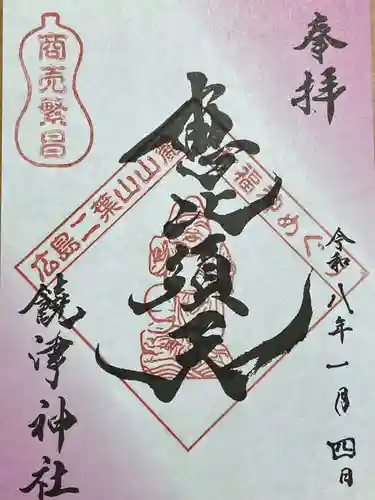 奉拝
商売繁昌
広島二葉山山麓
福神めぐり
恵比須天
令和八年一月四日
饒津神社